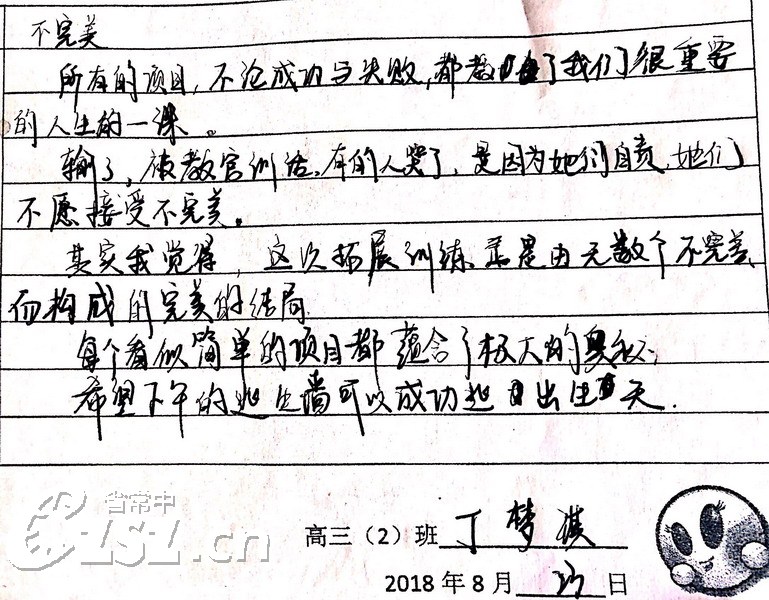 不完美
所有的项目，不论成功与失败，都教会了我们很重要
的人生的一课。
输了，被教官训话，有的人哭了，是因为她们自责，她们
不愿接受不完美。
其实我觉得，这次拓展训练正是由无数个不完美
而构成的完美的结局
每个看似简单的项目都蕴含了极大的奥秘；
希望下午的逃生墙可以成功逃出生天.
高三（2）班 丁梦淇
2018年8月 日
省常中
CZSZ.cn